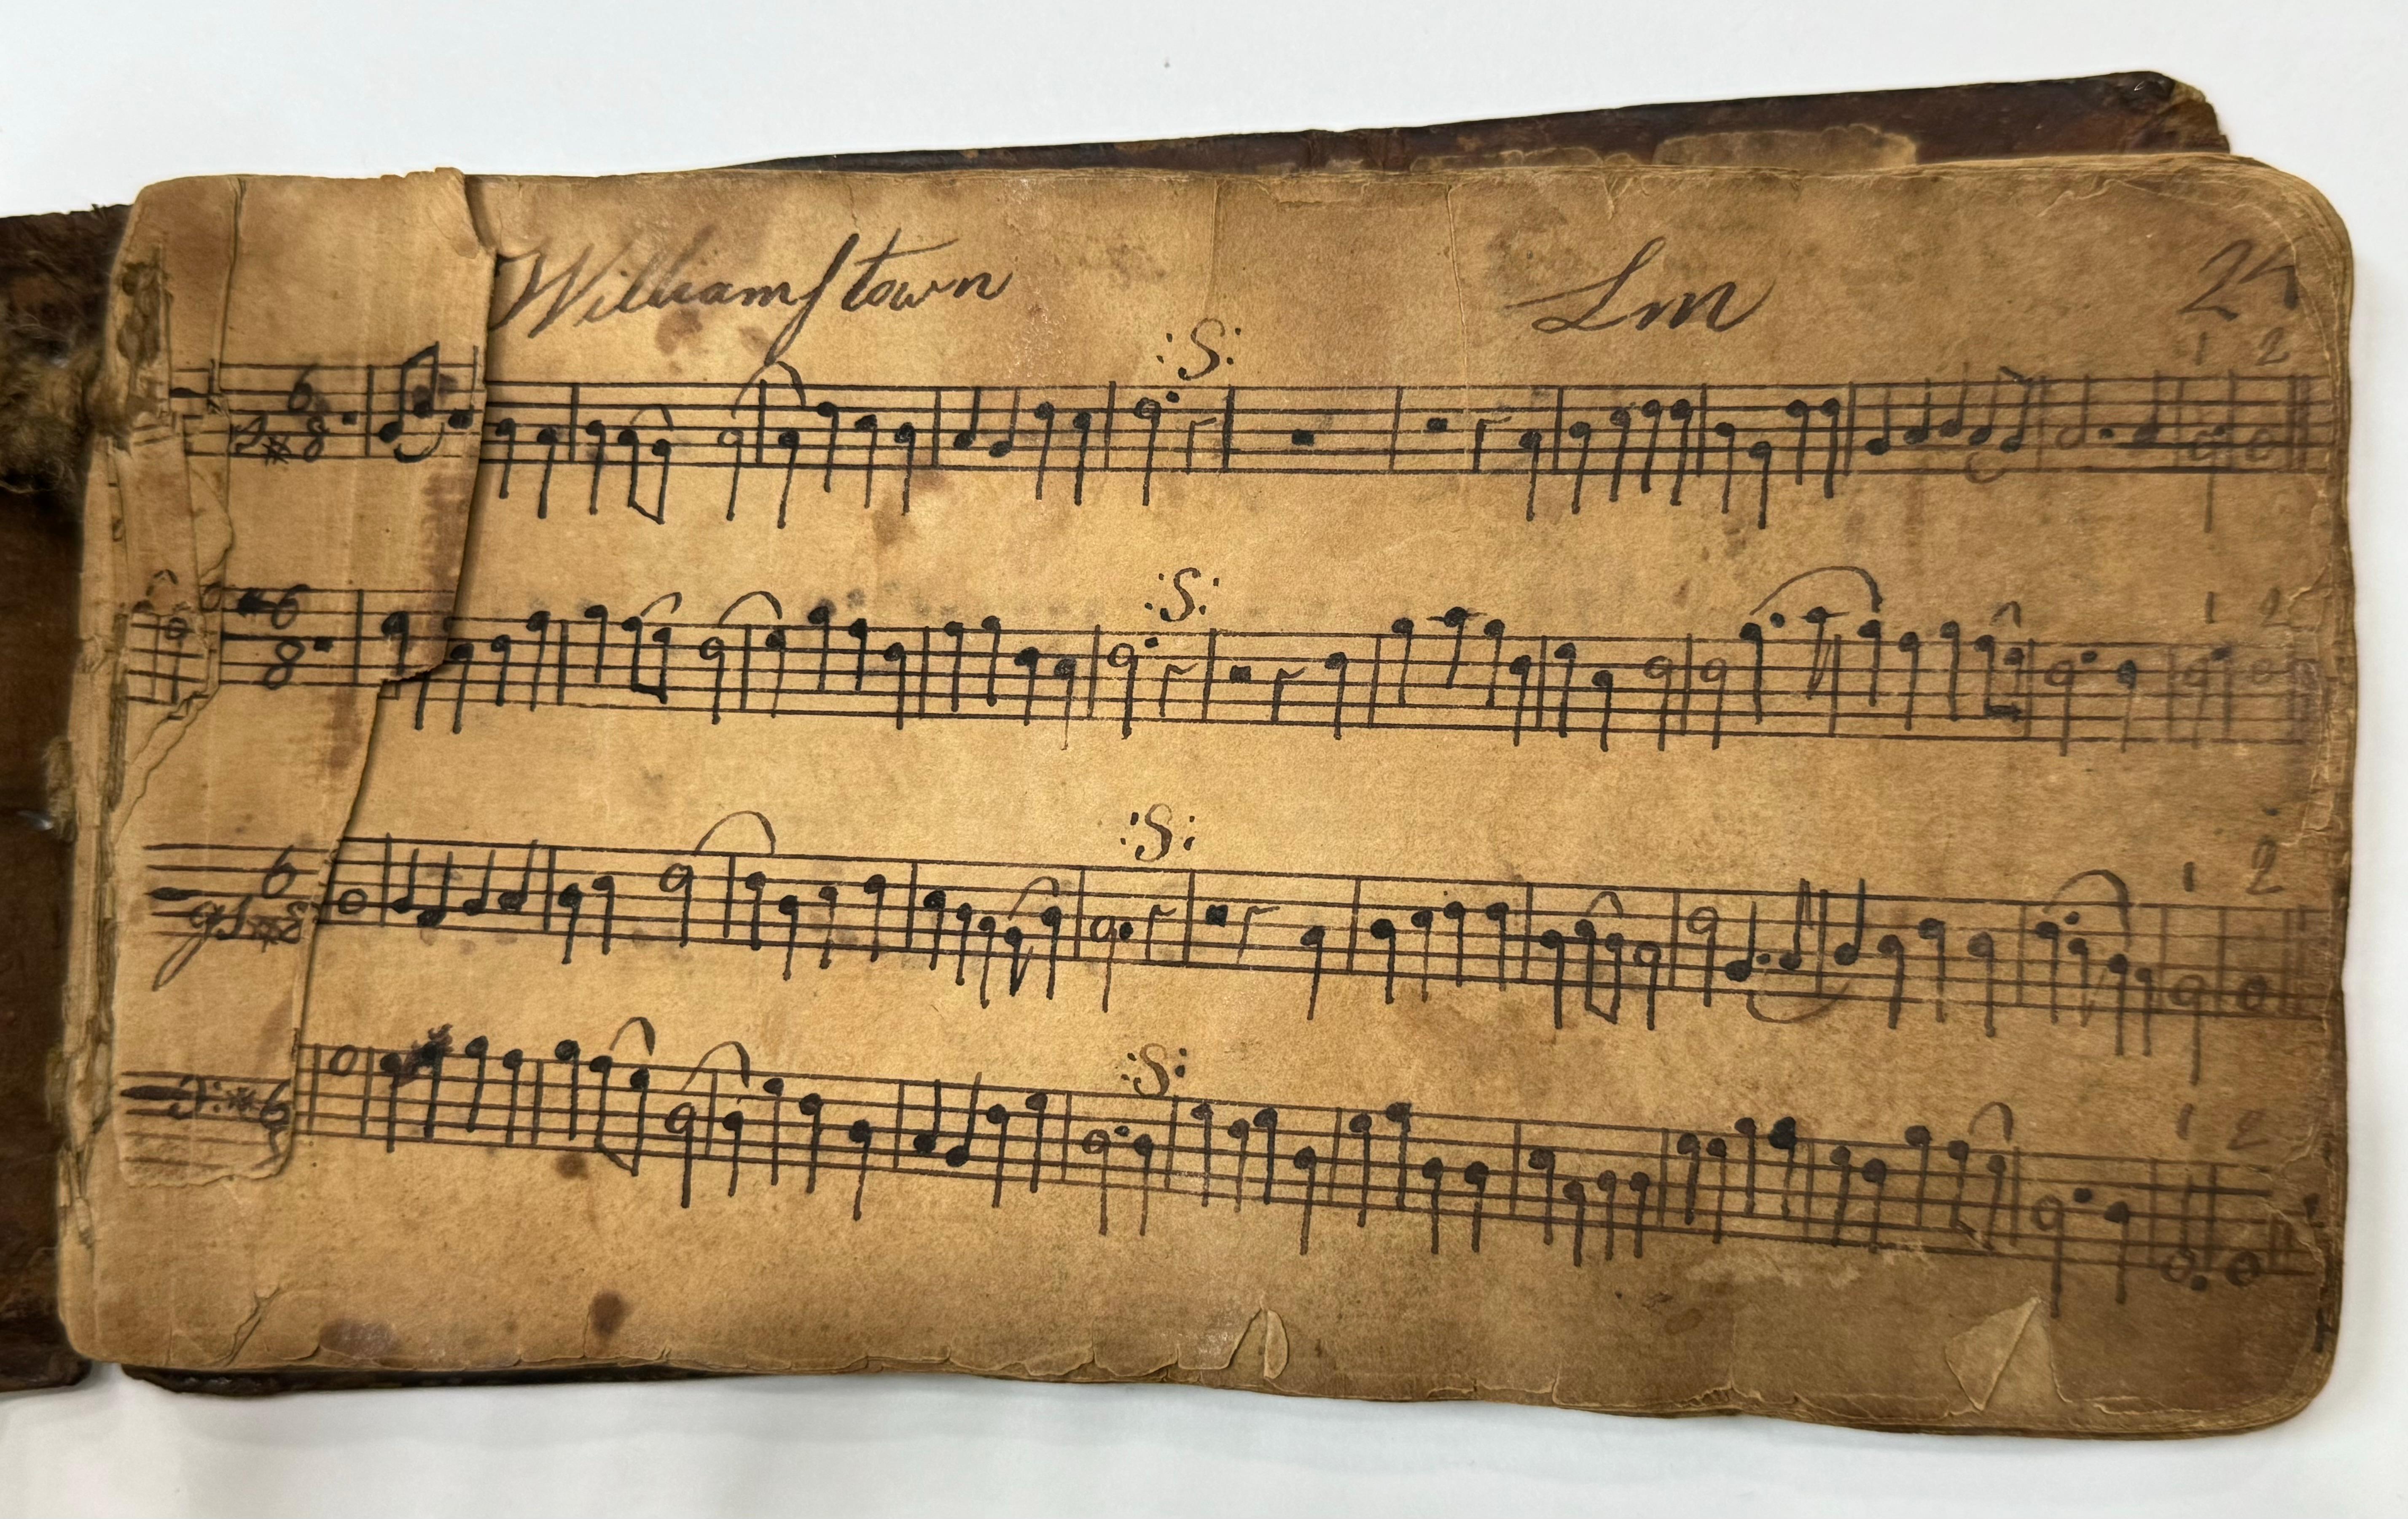 Williamſtown Lm
:S:
1 2
6
8
:S:
1 2
6
8
:S:
1 2
6
8
:S:
1 2
6